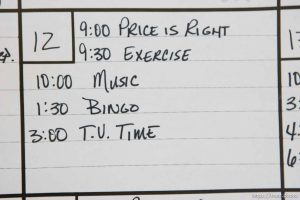 12
9:00 PRICE IS RIGHT
9:30 EXERCISE
10:00 MUSIC
1:30 BINGO
3:00 T.V. TIME
13
10:
1:
3: